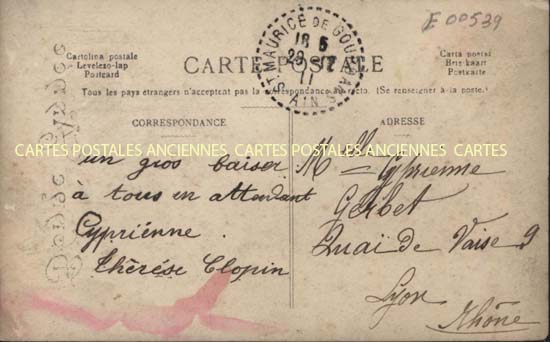 E 00539
Cartolina postale
Levelezo-lap
Postcard
CARTE POSTALE
Carta postal
Briefkaart
Postkarte
Tous les pays étrangers n'acceptent pas la correspondance au recto. (Se renseigner à la poste.)
ST MAURICE DE GOURDANS
18 5
29 12
11
AIN
CORRESPONDANCE
ADRESSE
CARTES POSTALES ANCIENNES CARTES POSTALES ANCIENNES CARTES
un gros baiser
à tous en attendant
Cypriénne.
Thérése Clopin
Melle Cyprienne
Gerbet
Quai de Vaise 9
Lyon
Rhône